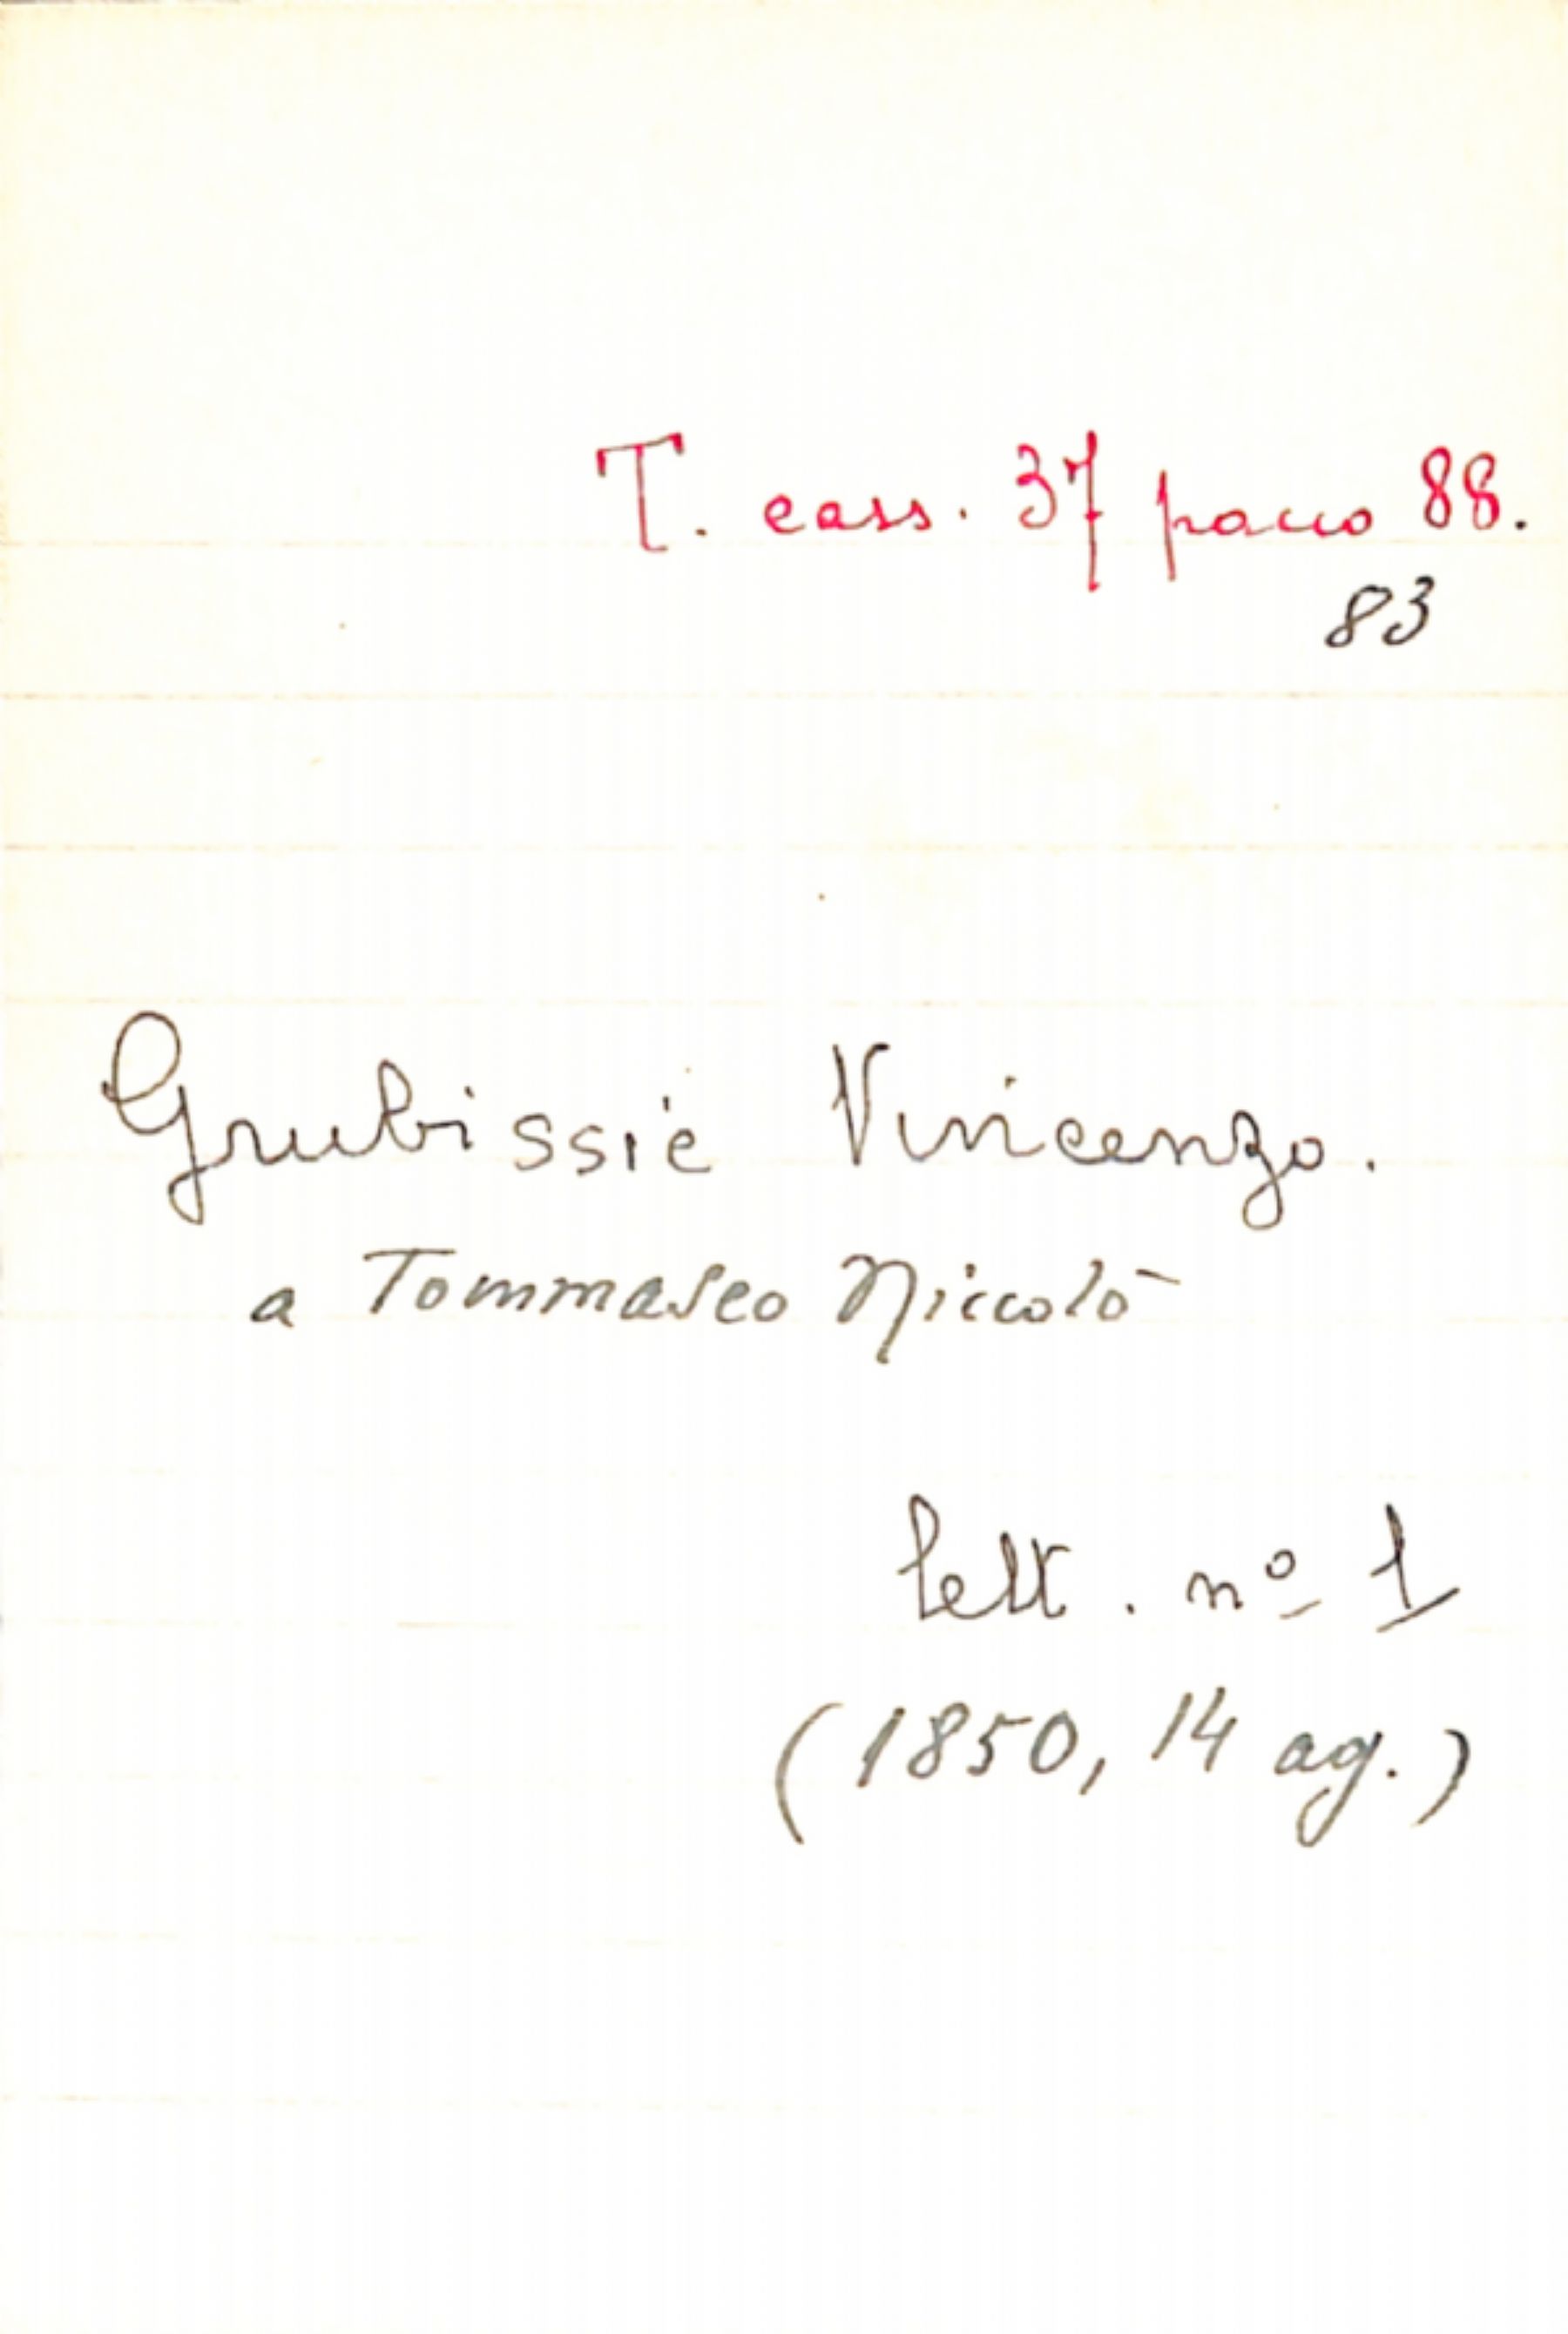 T. cass. 37 pacco 88.
83
Grubissić Vincenzo.
a Tommaseo Niccolò
lett. nº 1
(1850, 14 ag.)